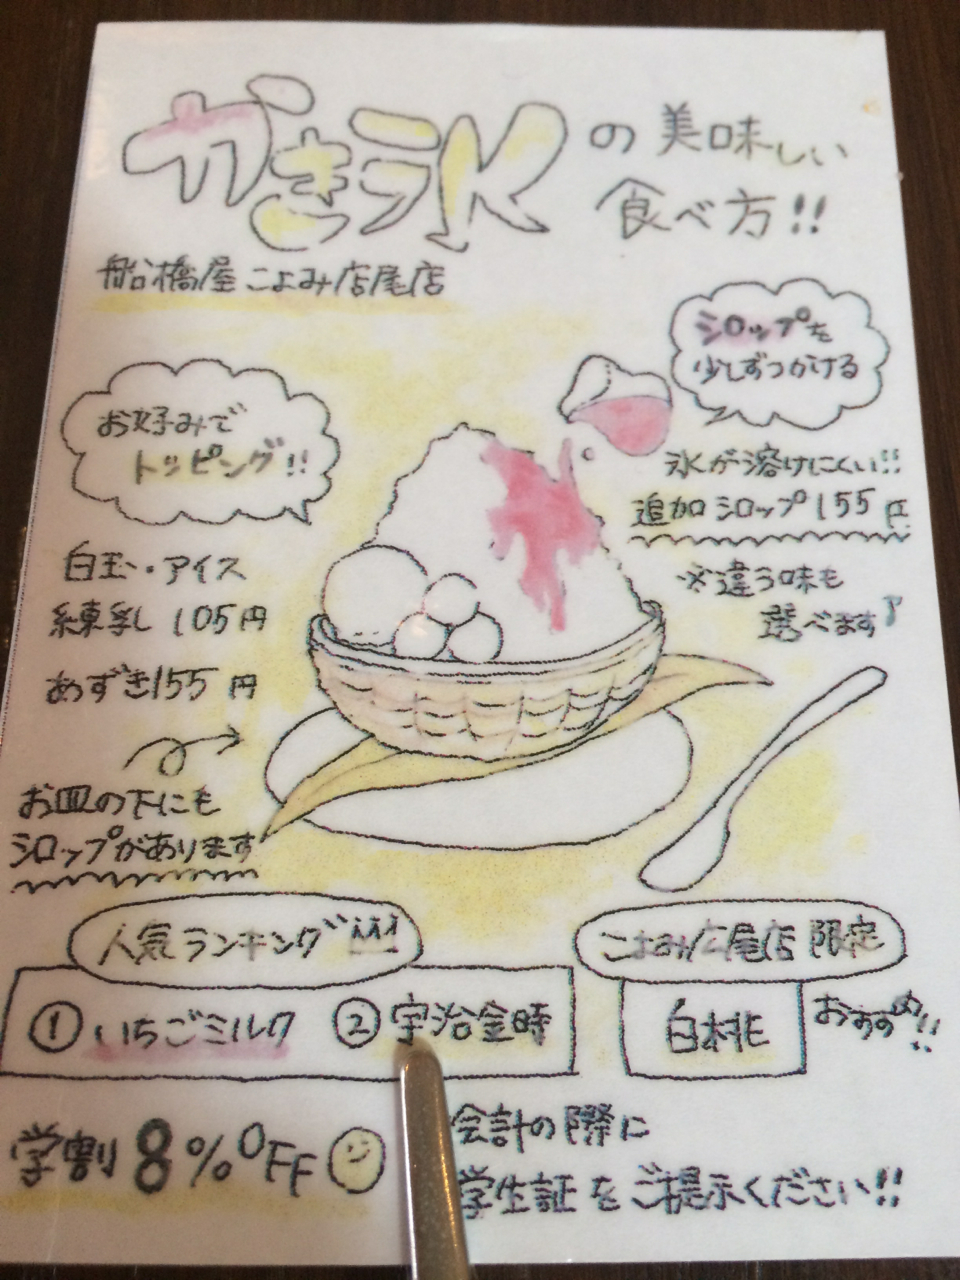 かき氷の美味しい
食べ方!!
船橋屋こよみ広尾店
シロップを
少しずつかける
お好みで
トッピング!!
氷が溶けにくい!!
追加シロップ155円
白玉・アイス
練乳 105円
※違う味も
選べます
あずき155円
お皿の下にも
シロップがあります
人気ランキング
こよみ広尾店 限定
①いちごミルク ②宇治金時
白桃 おすすめ!!
学割8%OFF
会計の際に
学生証をご提示ください!!